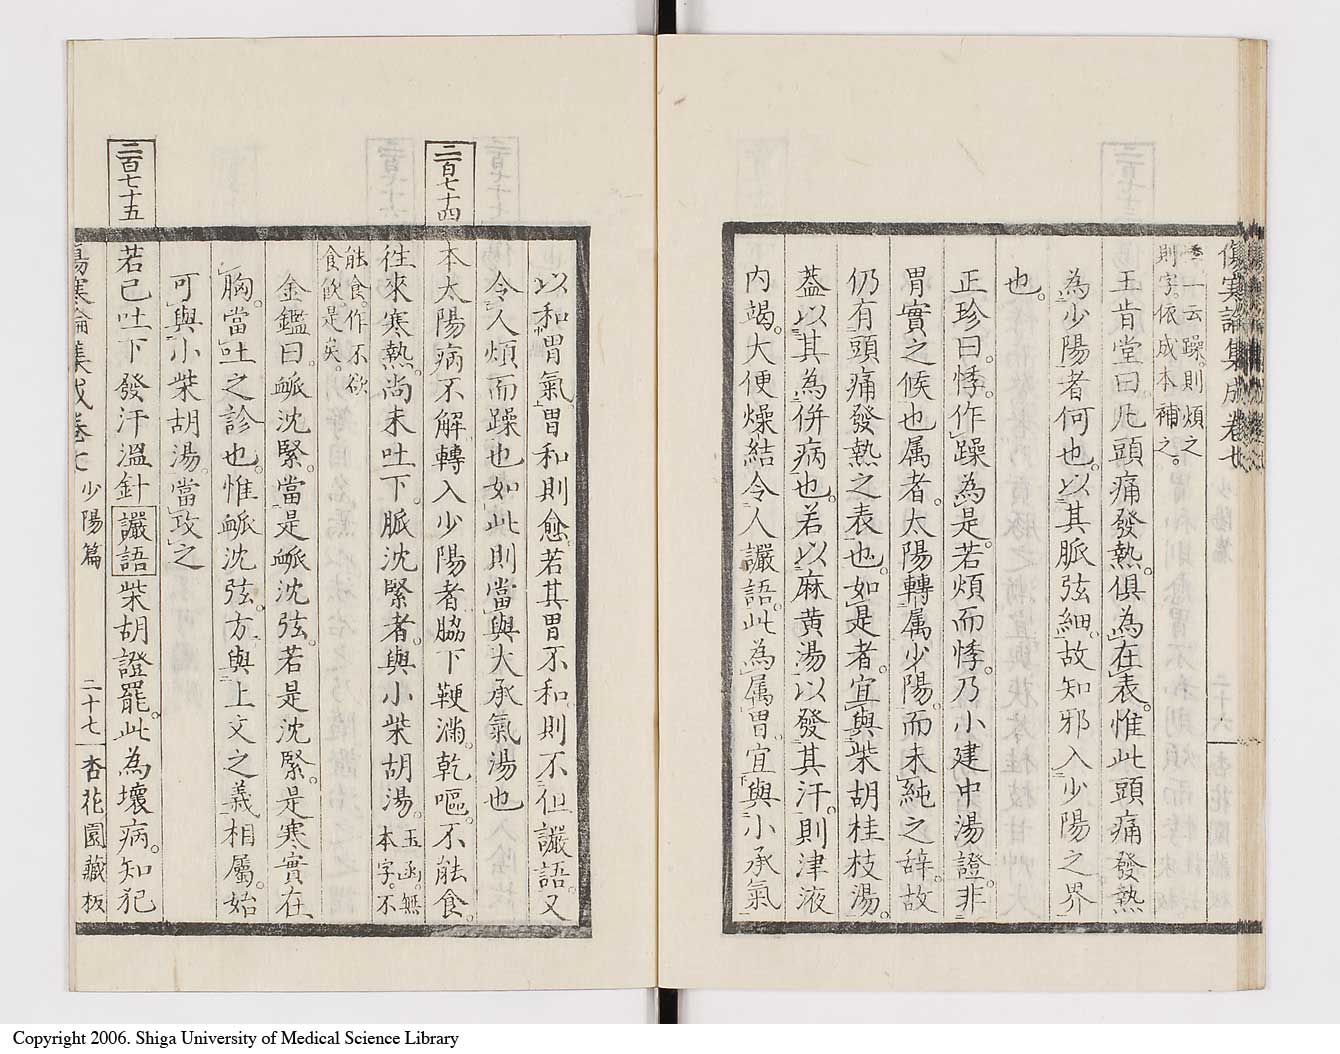 傷寒論集成卷七
一云躁。則煩之
則字。依成本補之。
王肯堂曰。凡頭痛發熱。俱為在表。惟此頭痛發熱
為少陽者何也。以其脈弦細。故知邪入少陽之界
也。
正珍曰。悸。作躁為是。若煩而悸。乃小建中湯證。非
胃實之候也属者。太陽轉属少陽。而未純之辞。故
仍有頭痛發熱之表也。如是者。宜與柴胡桂枝湯。
蓋以其為併病也。若以麻黄湯以發其汗。則津液
内竭。大便燥結。令人讝語。此為属胃。宜與小承氣
以和胃氣。胃和則愈。若其胃不和。則不但讝語。又
令人煩而躁也。如此則當與大承氣湯也
二百七十四
本太陽病不解。轉入少陽者。脇下鞕滿。乾嘔。不能食。
往來寒熱。尚未吐下。脈沈緊者。與小柴胡湯。玉函。無
本字。不
能食。作不欲
食飲是矣。
金鑑曰。脈沈緊。當是脈沈弦。若是沈緊。是寒實在
胸。當吐之診也。惟脈沈弦。方與上文之義相屬。始
可與小柴胡湯。當攻之
二百七十五
若已吐下發汗溫針讝語柴胡證罷。此為壞病。知犯
傷寒論集成卷七 少陽篇 二十七 杏花園藏板
Copyright 2006. Shiga University of Medical Science Library